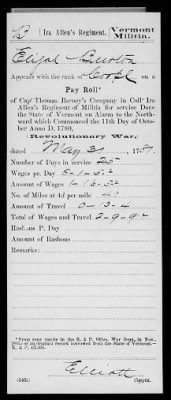 B | Ira Allen's Regiment, | Vermont Militia.
Elijah Burton
Appears with the rank of Corpl on a
Pay Roll*
of Capt Thomas Barney's Company in Coll Ira
Allen's Regiment of Militia for service Dare
the State of Vermont on Alarm to the North-
ward which Commenced the 11th Day of Octo-
ber Anno D. 1780,
Revolutionary War,
dated May 31, 178
Number of Days in service
Wages pr. Day
Amount of Wages
No. of Miles at 4d per mile 40
Amount of Travel 0-13-4
Total of Wages and Travel
Rations P. Day
Amount of Rashons
Remarks:
*From copy made in the R. & P. Office, War Dept., in
of an original record borrowed from the State of Vermont.—
R. & P.
Elliott
Copyist.